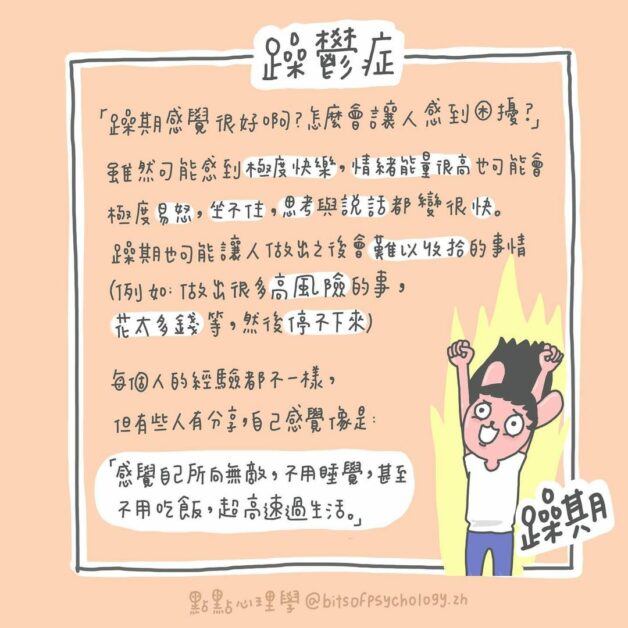 躁鬱症
「躁期感覺很好啊?怎麼會讓人感到困擾?」
雖然可能感到極度快樂,情緒能量很高也可能會
極度易怒,坐不住,思考與說話都變很快。
躁期也可能讓人做出之後會難以收拾的事情
(例如:做出很多高風險的事,
花太多錢等,然後停不下來)
每個人的經驗都不一樣,
但有些人有分享,自己感覺像是:
「感覺自己所向無敵,不用睡覺,甚至
不用吃飯,超高速過生活。」
躁期
點點心理學 @bitsofpsychology.zh